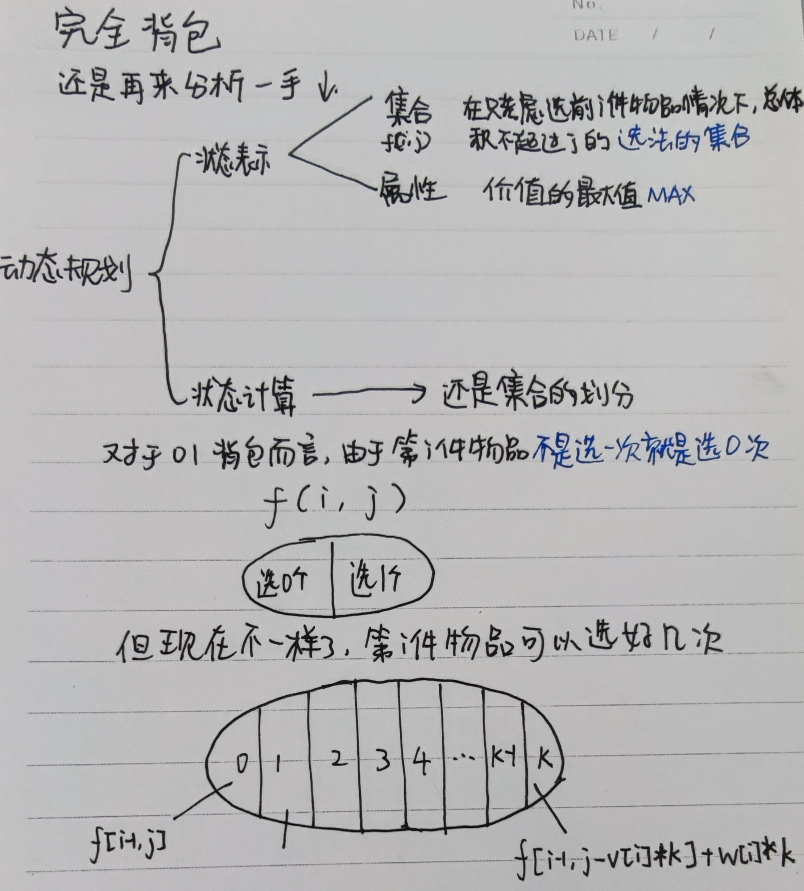 No.
DATE / /
完全背包
还是再来分析一手↓
集合 在只考虑选前i件物品情况下,总体
f(i,j) 积不超过j的选法的集合
状态表示
属性 价值的最大值 MAX
动态规划
状态计算 → 还是集合的划分
对于01背包而言,由于第i件物品不是选一次就是选0次
f(i,j)
选0个 选1个
但现在不一样了,第i件物品可以选好几次
0 1 2 3 4 ... K-1 K
f[i-1,j]
f[i-1,j-v[i]*k]+w[i]*k